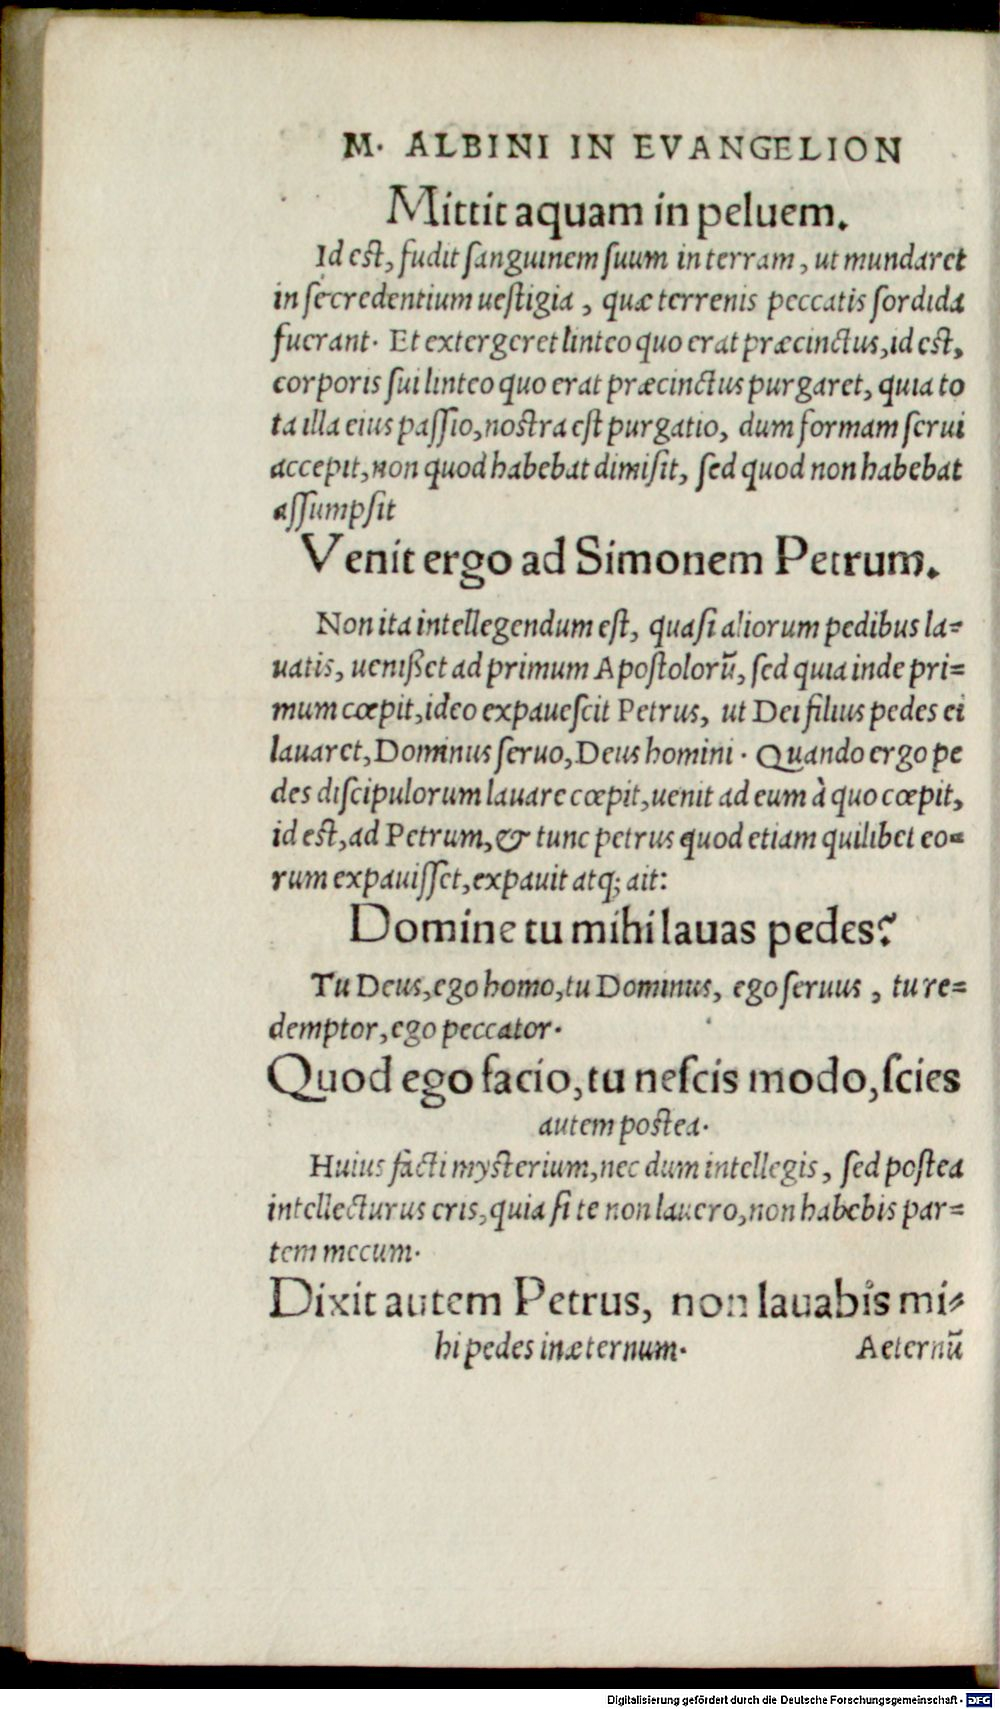 M. ALBINI IN EVANGELION
Mittit aquam in peluem.
Id est, fudit sanguinem suum in terram, ut mundaret
in se credentium uestigia, quæ terrenis peccatis sordida
fuerant. Et extergeret linteo quo erat præcinctus, id est,
corporis sui linteo quo erat præcinctus purgaret, quia to
ta illa eius passio, nostra est purgatio, dum formam serui
accepit, non quod habebat dimisit, sed quod non habebat
assumpsit
Venit ergo ad Simonem Petrum.
Non ita intellegendum est, quasi aliorum pedibus la=
uatis, uenißet ad primum Apostolorũ, sed quia inde pri=
mum cœpit, ideo expauescit Petrus, ut Dei filius pedes ei
lauaret, Dominus seruo, Deus homini. Quando ergo pe
des discipulorum lauare cœpit, uenit ad eum à quo cœpit,
id est, ad Petrum, & tunc petrus quod etiam quilibet eo=
rum expauisset, expauit atq; ait:
Domine tu mihi lauas pedes?
Tu Deus, ego homo, tu Dominus, ego seruus, tu re=
demptor, ego peccator.
Quod ego facio, tu nescis modo, scies
autem postea.
Huius facti mysterium, nec dum intellegis, sed postea
intellecturus eris, quia si te non lauero, non habebis par=
tem mecum.
Dixit autem Petrus, non lauabis mi=
hi pedes in æternum. Aeternũ
Digitalisierung gefördert durch die Deutsche Forschungsgemeinschaft - DFG